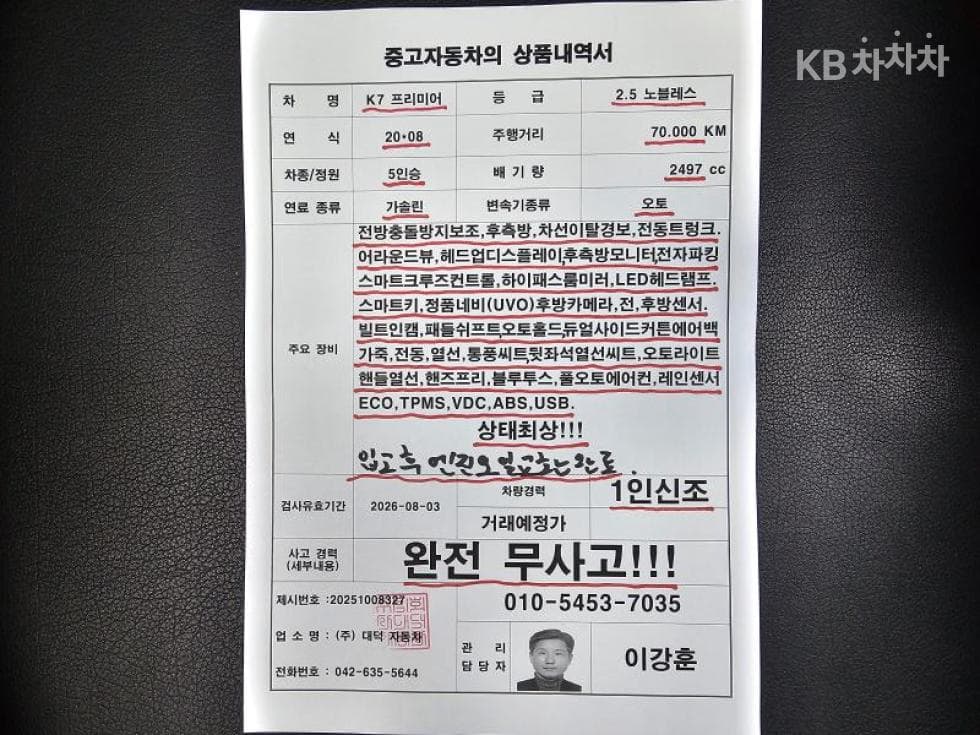 중고자동차의 상품내역서
KB차차차
차 명 K7 프리미어 등 급 2.5 노블레스
연 식 20·08 주행거리 70.000 KM
차종/정원 5인승 배 기 량 2497 cc
연료 종류 가솔린 변속기종류 오토
주요 장비
전방충돌방지보조,후측방,차선이탈경보,전동트렁크.
어라운드뷰,헤드업디스플레이,후측방모니터,전자파킹
스마트크루즈컨트롤,하이패스룸미러,LED헤드램프.
스마트키,정품네비(UVO)후방카메라,전,후방센서.
빌트인캠,패들쉬프트,오토홀드,듀얼사이드커튼에어백
가죽,전동,열선,통풍씨트,뒷좌석열선씨트,오토라이트
핸들열선,핸즈프리,블루투스,풀오토에어컨,레인센서
ECO,TPMS,VDC,ABS,USB.
상태최상!!!
입고후 엔진오일교환완료.
검사유효기간 2026-08-03 차량경력 1인신조
거래예정가
사고 경력
(세부내용)
완전 무사고!!!
제시번호 :20251008327
010-5453-7035
업 소 명 : (주) 대덕 자동차
전화번호 : 042-635-5644
관 리
담 당 자
이강훈